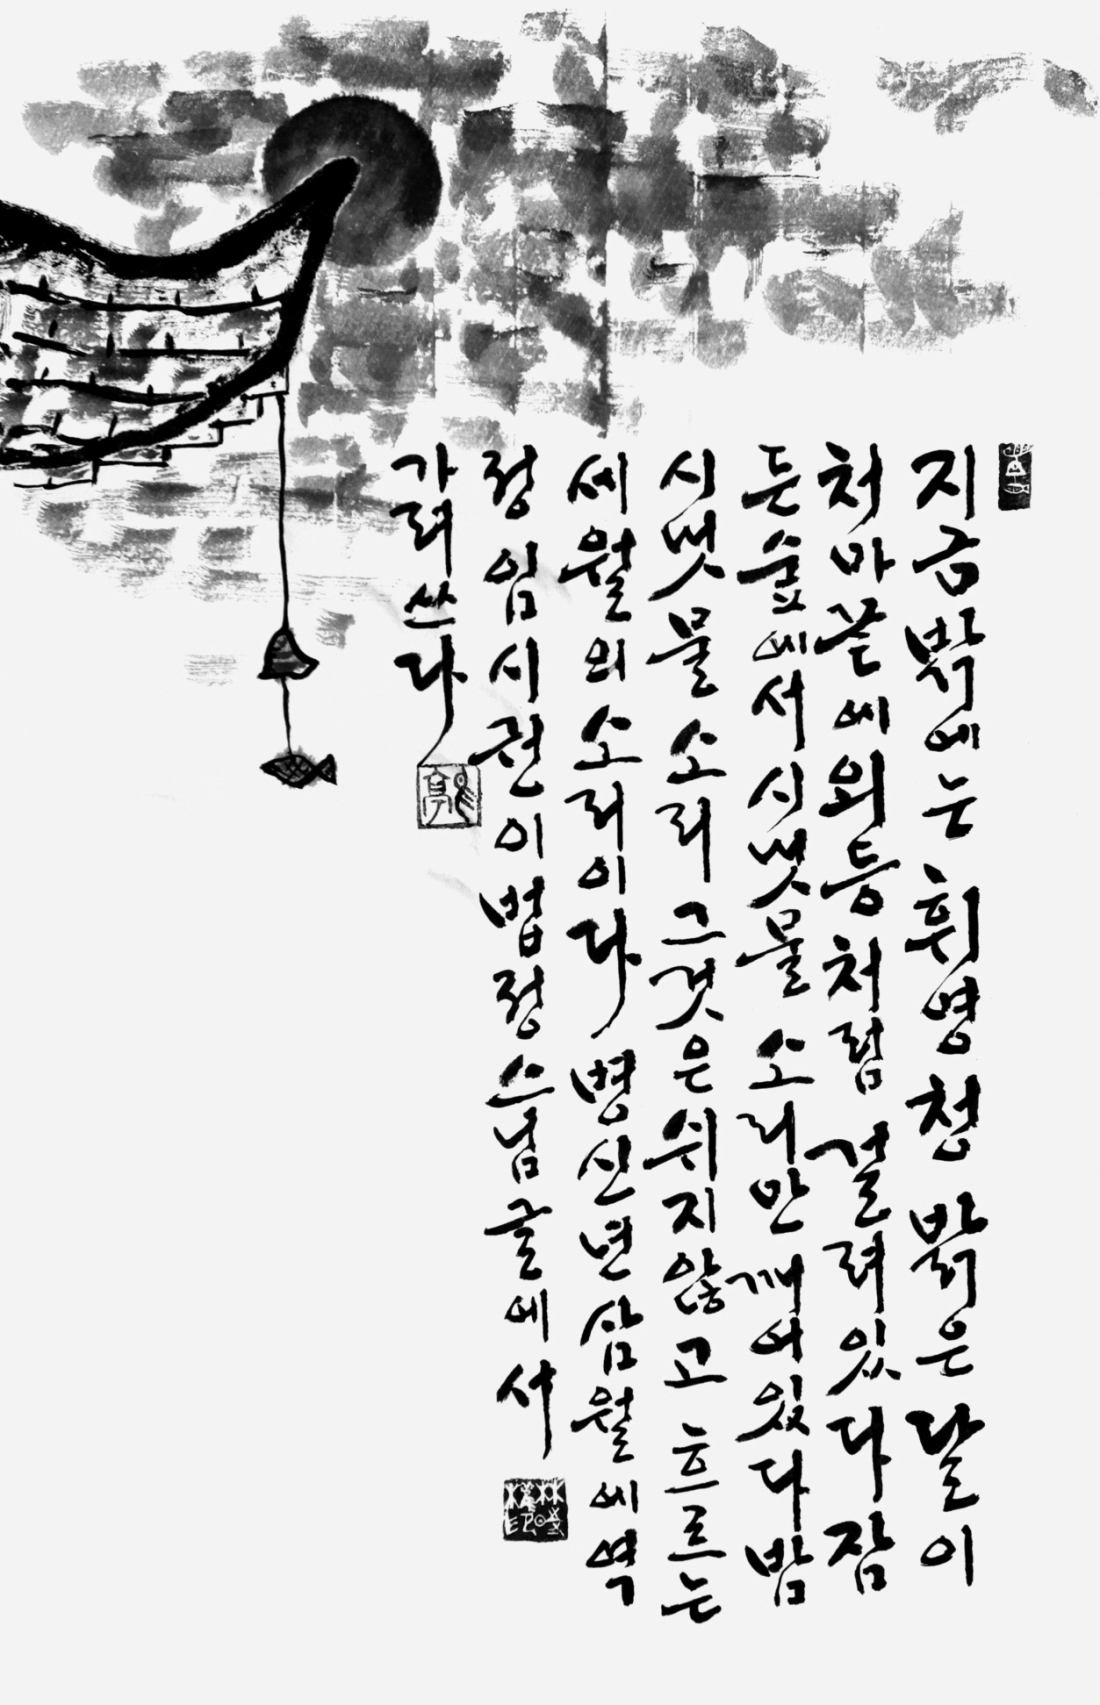 지금밖에는 휘영청 밝은달이
처마끝에외등처럼 걸려있다 잠
든숲에서시냇물 소리만깨어있다밤
시냇물 소리 그것은쉬지않고 흐르는
세월의소리이다 병신년삼월에역
정 임시권이법정스님글에서
가려쓰다